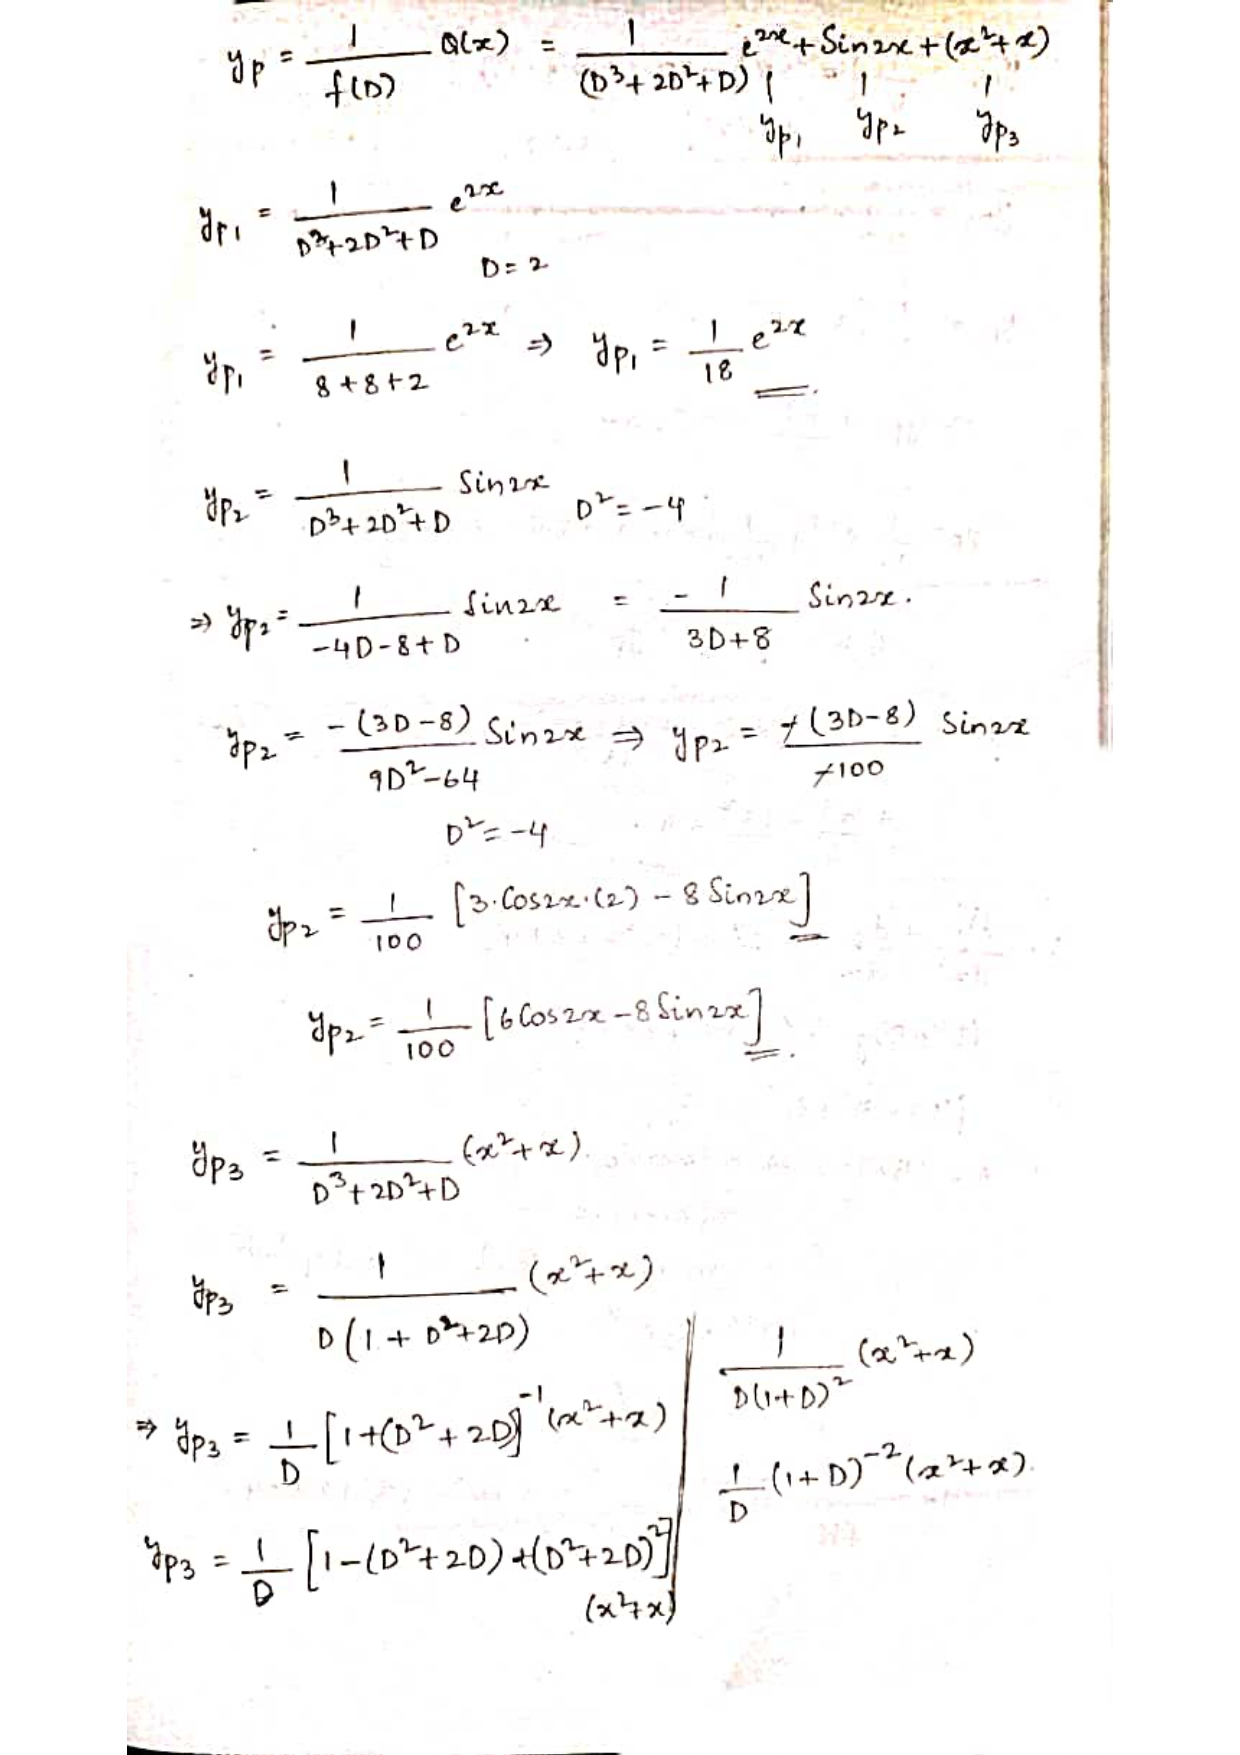 yp = 1/f(D) Q(x) = 1/(D³+2D²+D) e^2x + Sin2x + (x²+x)
yp₁ yp₂ yp₃
yp₁ = 1/(D³+2D²+D) e^2x
D = 2
yp₁ = 1/(8+8+2) e^2x ⇒ yp₁ = 1/18 e^2x
yp₂ = 1/(D³+2D²+D) Sin2x D² = -4
⇒ yp₂ = 1/(-4D-8+D) Sin2x = -1/(3D+8) Sin2x.
yp₂ = -(3D-8)/(9D²-64) Sin2x ⇒ yp₂ = -(3D-8)/-100 Sin2x
D² = -4
yp₂ = 1/100 [3·Cos2x·(2) - 8 Sin2x]
yp₂ = 1/100 [6Cos2x - 8Sin2x].
yp₃ = 1/(D³+2D²+D) (x²+x).
yp₃ = 1/(D(1+D²+2D)) (x²+x)
⇒ yp₃ = 1/D [1+(D²+2D)]⁻¹ (x²+x)
yp₃ = 1/D [1-(D²+2D)+(D²+2D)²]
(x²+x)
1/(D(1+D)²) (x²+x)
1/D (1+D)⁻² (x²+x).